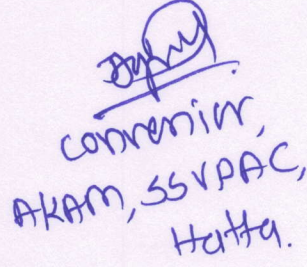 convenior,
AKAM, SSVPAC,
Hatta.